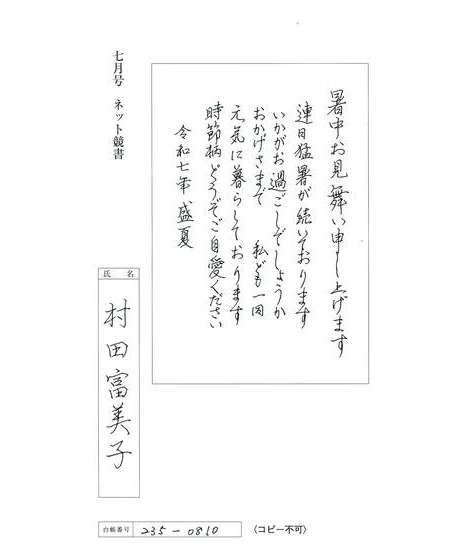 暑中お見舞い申し上げます
連日猛暑が続いております
いかがお過ごしでしょうか
おかげさまで　私ども一同
元気に暮らしております
時節柄どうぞご自愛ください
令和七年　盛夏
七月号　ネット競書
氏名
村田富美子
台帳番号　235-0810
〈コピー不可〉